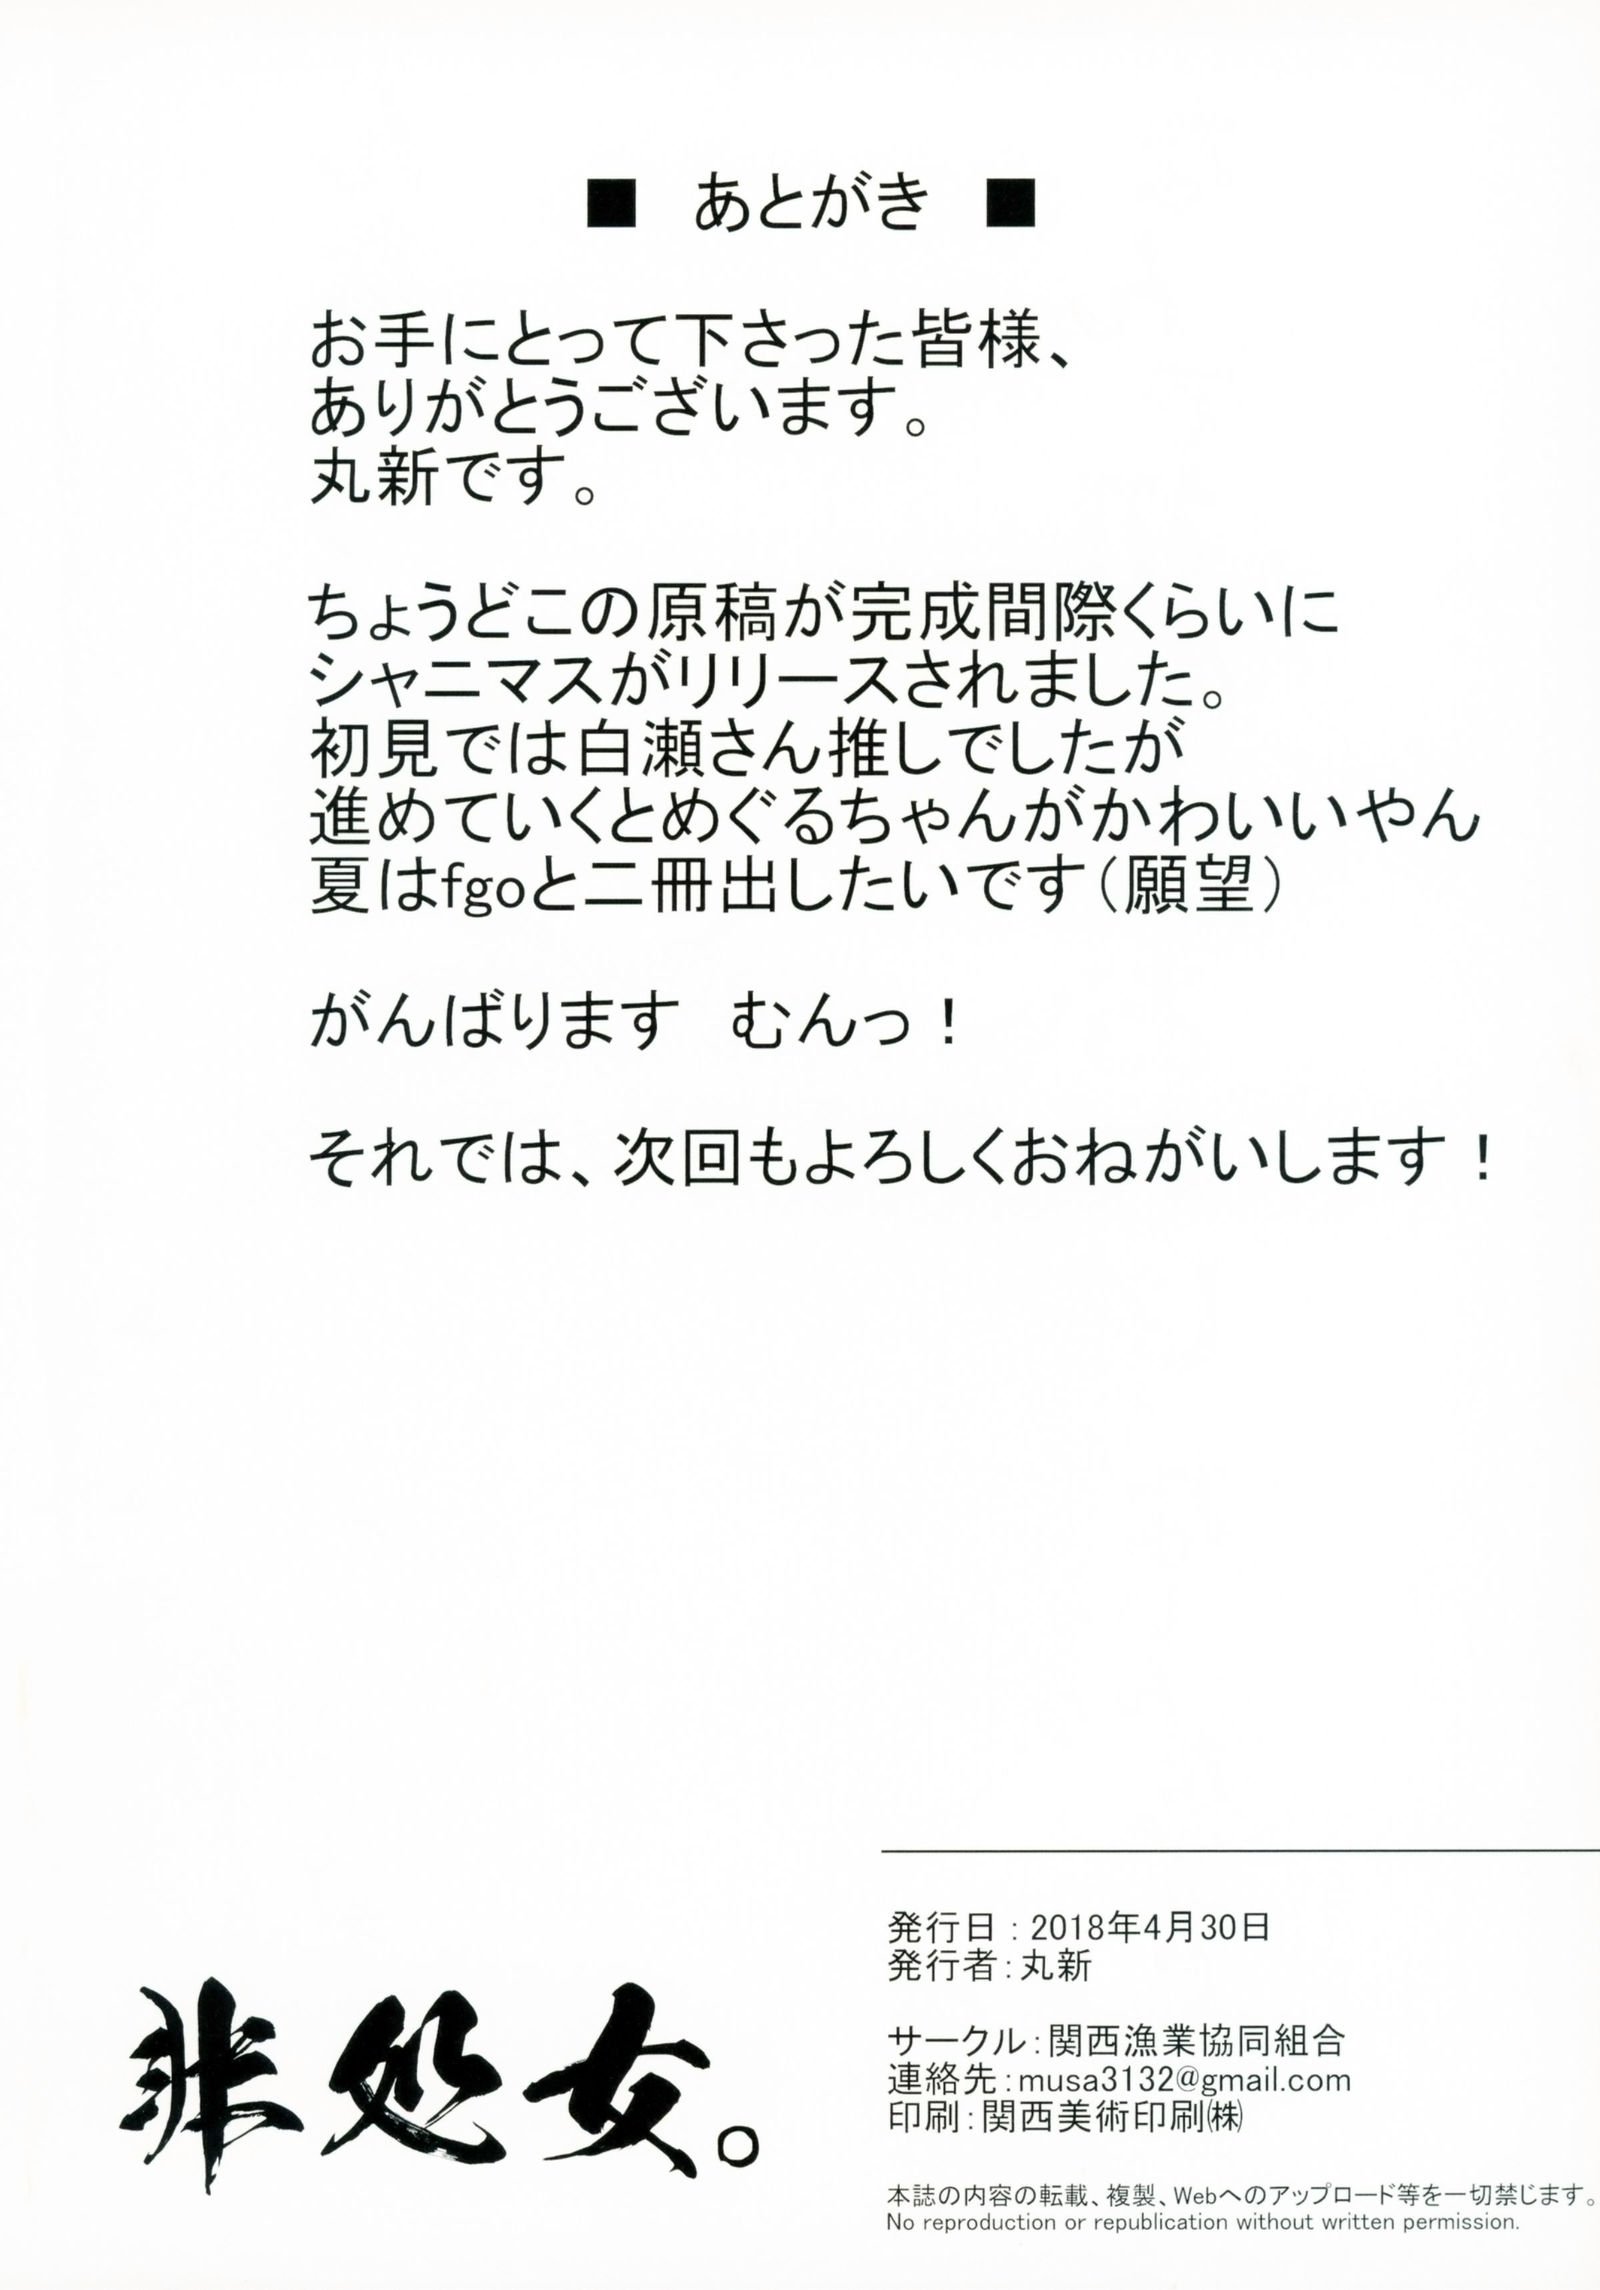 ■ あとがき ■
お手にとって下さった皆様、
ありがとうございます。
丸新です。
ちょうどこの原稿が完成間際くらいに
シャニマスがリリースされました。
初見では白瀬さん推しでしたが
進めていくとめぐるちゃんがかわいいやん
夏はfgoと二冊出したいです（願望）
がんばります　むんっ！
それでは、次回もよろしくおねがいします！
非処女。
発行日：2018年4月30日
発行者：丸新
サークル：関西漁業協同組合
連絡先：musa3132@gmail.com
印刷：関西美術印刷㈱
本誌の内容の転載、複製、Webへのアップロード等を一切禁じます。
No reproduction or republication without written permission.